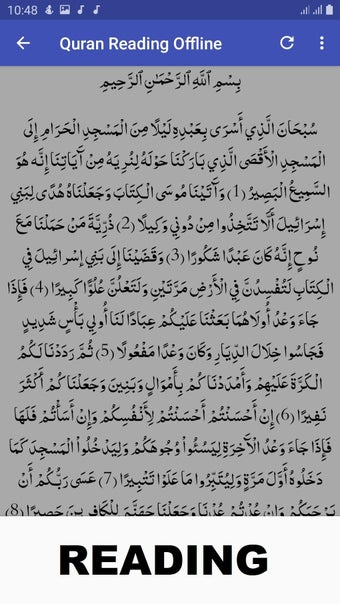 10:48
Quran Reading Offline
بِسْمِ ٱللَّهِ ٱلرَّحْمَٰنِ ٱلرَّحِيمِ
سُبْحَانَ الَّذِي أَسْرَى بِعَبْدِهِ لَيْلًا مِنَ الْمَسْجِدِ الْحَرَامِ إِلَى
الْمَسْجِدِ الْأَقْصَى الَّذِي بَارَكْنَا حَوْلَهُ لِنُرِيَهُ مِنْ آيَاتِنَا إِنَّه هُوَ
السَّمِيعُ الْبَصِيرُ (1) وَآتَيْنَا مُوسَى الْكِتَابَ وَجَعَلْنَاهُ هُدًى لِبَنِي
إِسْرَائِيلَ أَلَّا تَتَّخِذُوا مِنْ دُونِي وَكِيلًا (2) ذُرِّيَّةَ مَنْ حَمَلْنَا مَعَ
نُوحٍ إِنَّهُ كَانَ عَبْدًا شَكُورًا (3) وَقَضَيْنَا إِلَى بَنِي إِسْرائِيلَ فِي
الْكِتَابِ لَتُفْسِدُنَّ فِي الْأَرْضِ مَرَّتَيْنِ وَلَتَعْلُنَّ عُلُوًّا كَبِيرًا (4) فَإِذَا
جَاءَ وَعْدُ أُولَاهُمَا بَعَثْنَا عَلَيْكُمْ عِبَادًا لَنَا أُولِي بَأْسٍ شَدِيدٍ
فَجَاسُوا خِلَالَ الدِّيَارِ وَكَانَ وَعْدًا مَفْعُولًا (5) ثُمَّ رَدَدْنَا لَكُمُ
الْكَرَّةَ عَلَيْهِمْ وَأَمْدَدْنَاكُمْ بِأَمْوَالٍ وَبَنِينَ وَجَعَلْنَاكُمْ أَكْثَرَ
نَفِيرًا (6) إِنْ أَحْسَنْتُمْ أَحْسَنْتُمْ لِأَنْفُسِكُمْ وَإِنْ أَسَأْتُمْ فَلَهَا
فَإِذَا جَاءَ وَعْدُ الْآخِرَةِ لِيَسُئُوا وُجُوهَكُمْ وَلِيَدْخُلُوا الْمَسْجِدَ كَمَا
دَخَلُوهُ أَوَّلَ مَرَّةٍ وَلِيُتَبِّرُوا مَا عَلَوْا تَتْبِيرًا (7) عَسَى رَبُّكُمْ أَنْ
يَرْحَمَكُمْ وَإِنْ عُدْتُمْ عُدْنَا وَجَعَلْنَا جَهَنَّمَ لِلْكَافِرِينَ حَصِيرًا (8)
READING